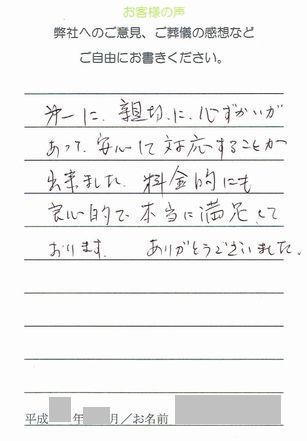 お客様の声
弊社へのご意見、ご葬儀の感想など
ご自由にお書きください。
第一に、親切に、心ずかいが
あって、安心して対応することが
出来ました。料金的にも
良心的で本当に満足して
おります。 ありがとうございました。
平成 年 月/お名前